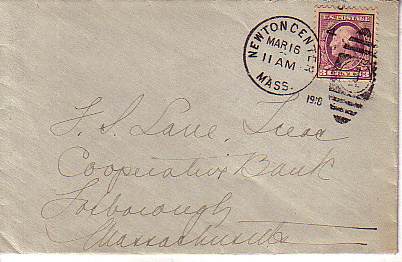 NEWTON CENTER
MAR 16
11 AM
MASS.
U.S. POSTAGE
F. S. Lane, Treas
Cooperative Bank
Foxborough
Massachusetts